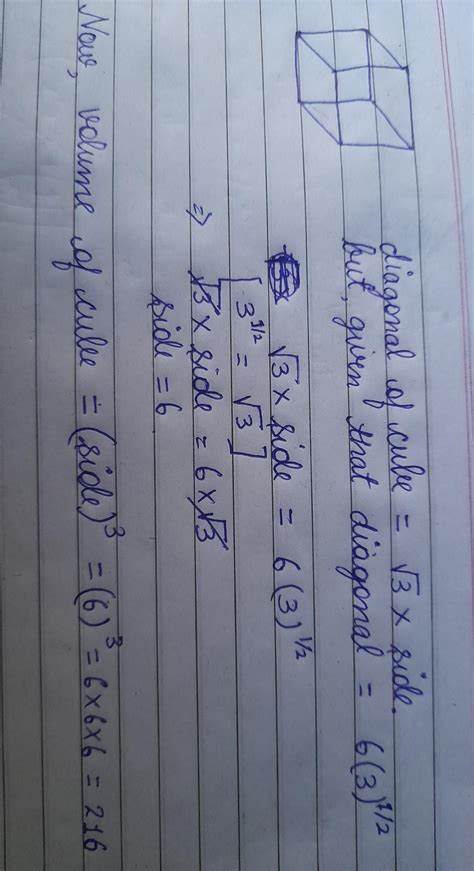 diagonal of cube = √3 × side.
but, given that diagonal = 6(3)^1/2
√3 × side = 6(3)^1/2
[3^1/2 = √3]
⇒ √3 × side = 6×√3
side = 6
Now, volume of cube = (side)^3 = (6)^3 = 6×6×6 = 216